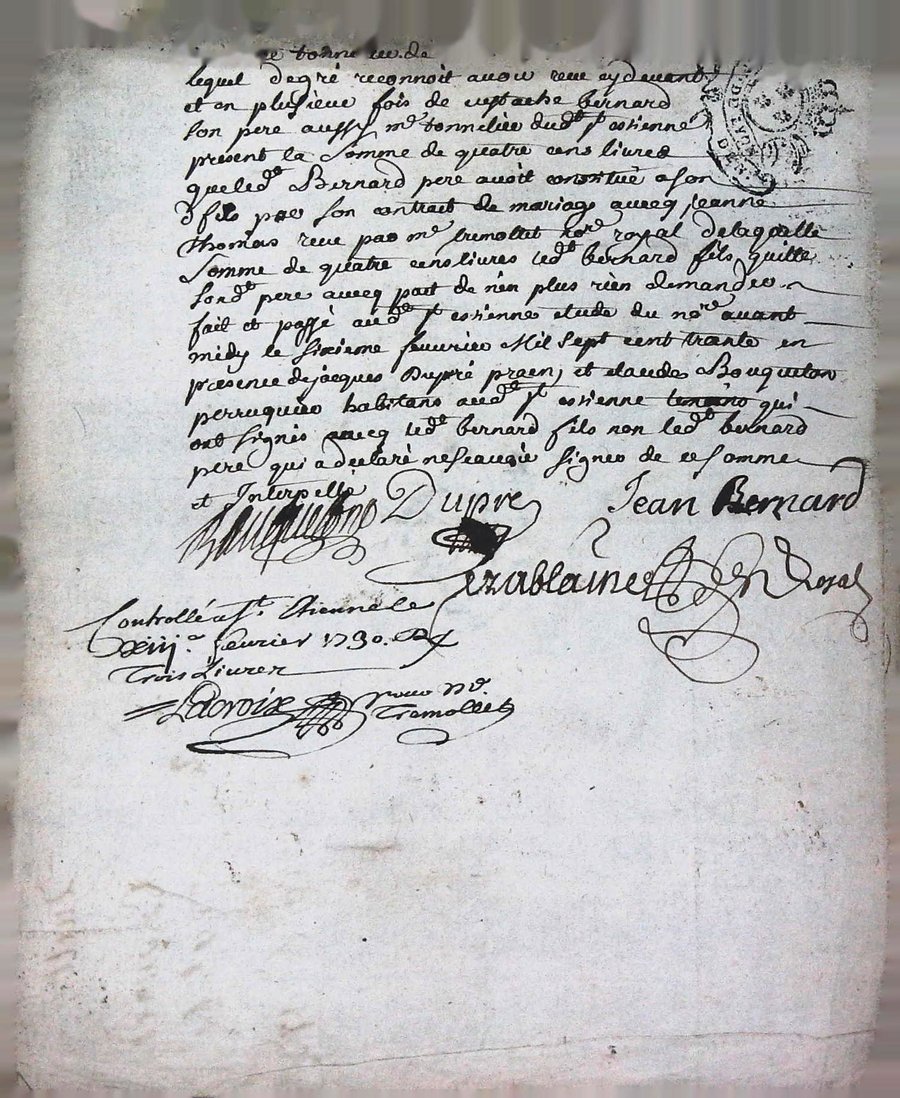 lequel de gré reconnoit avoir reçu cy devant
et en plusieurs fois de eustache bernard
son pere aussy me tonnelier dudt st estienne
present la somme de quatre cens livres
que ledt Bernard pere avoit constitué a son
d fils par son contrat de mariage avecq jeanne
thomas receu par me tremollet nore royal de laquelle
somme de quatre cens livres ledt bernard fils quitte
sondt pere avecq pact de n'en plus rien demander
fait et passé audt st estienne etude du nore avant
midy le sixieme fevvrier Mil sept cent trante en
presence de jacques Dupré et claude Bouqueton
perruquier habitans audt st estienne qui
ont signés avecq ledt bernard fils non ledt bernard
pere qui a declaré ne scavoir signer de ce sommé
et Interpellé
Dupré Jean Bernard
Controllé a St. Etienne le
xiii.e fevrier 1730. R
Trois Livres
Lacroix pour Mr.
Tremollet